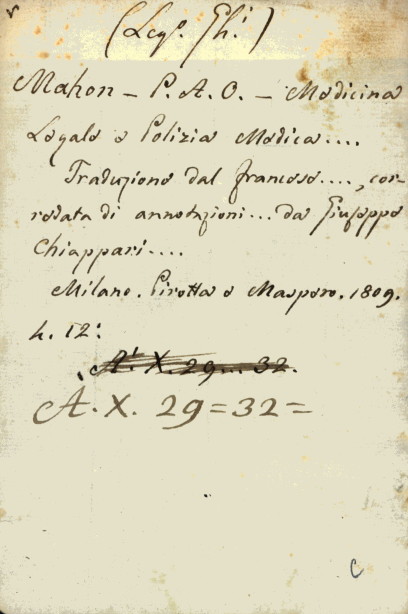 (Leg.º Gh.i)
Mahon - P. A. O. - Medicina
Legale e Polizia Medica....
Traduzione dal francese...., cor-
redata di annotazioni... da Giuseppe
Chiappari....
Milano. Pirotta e Maspero. 1809.
4. 12:
A. X. 29... 32.
A. X. 29=32=
C